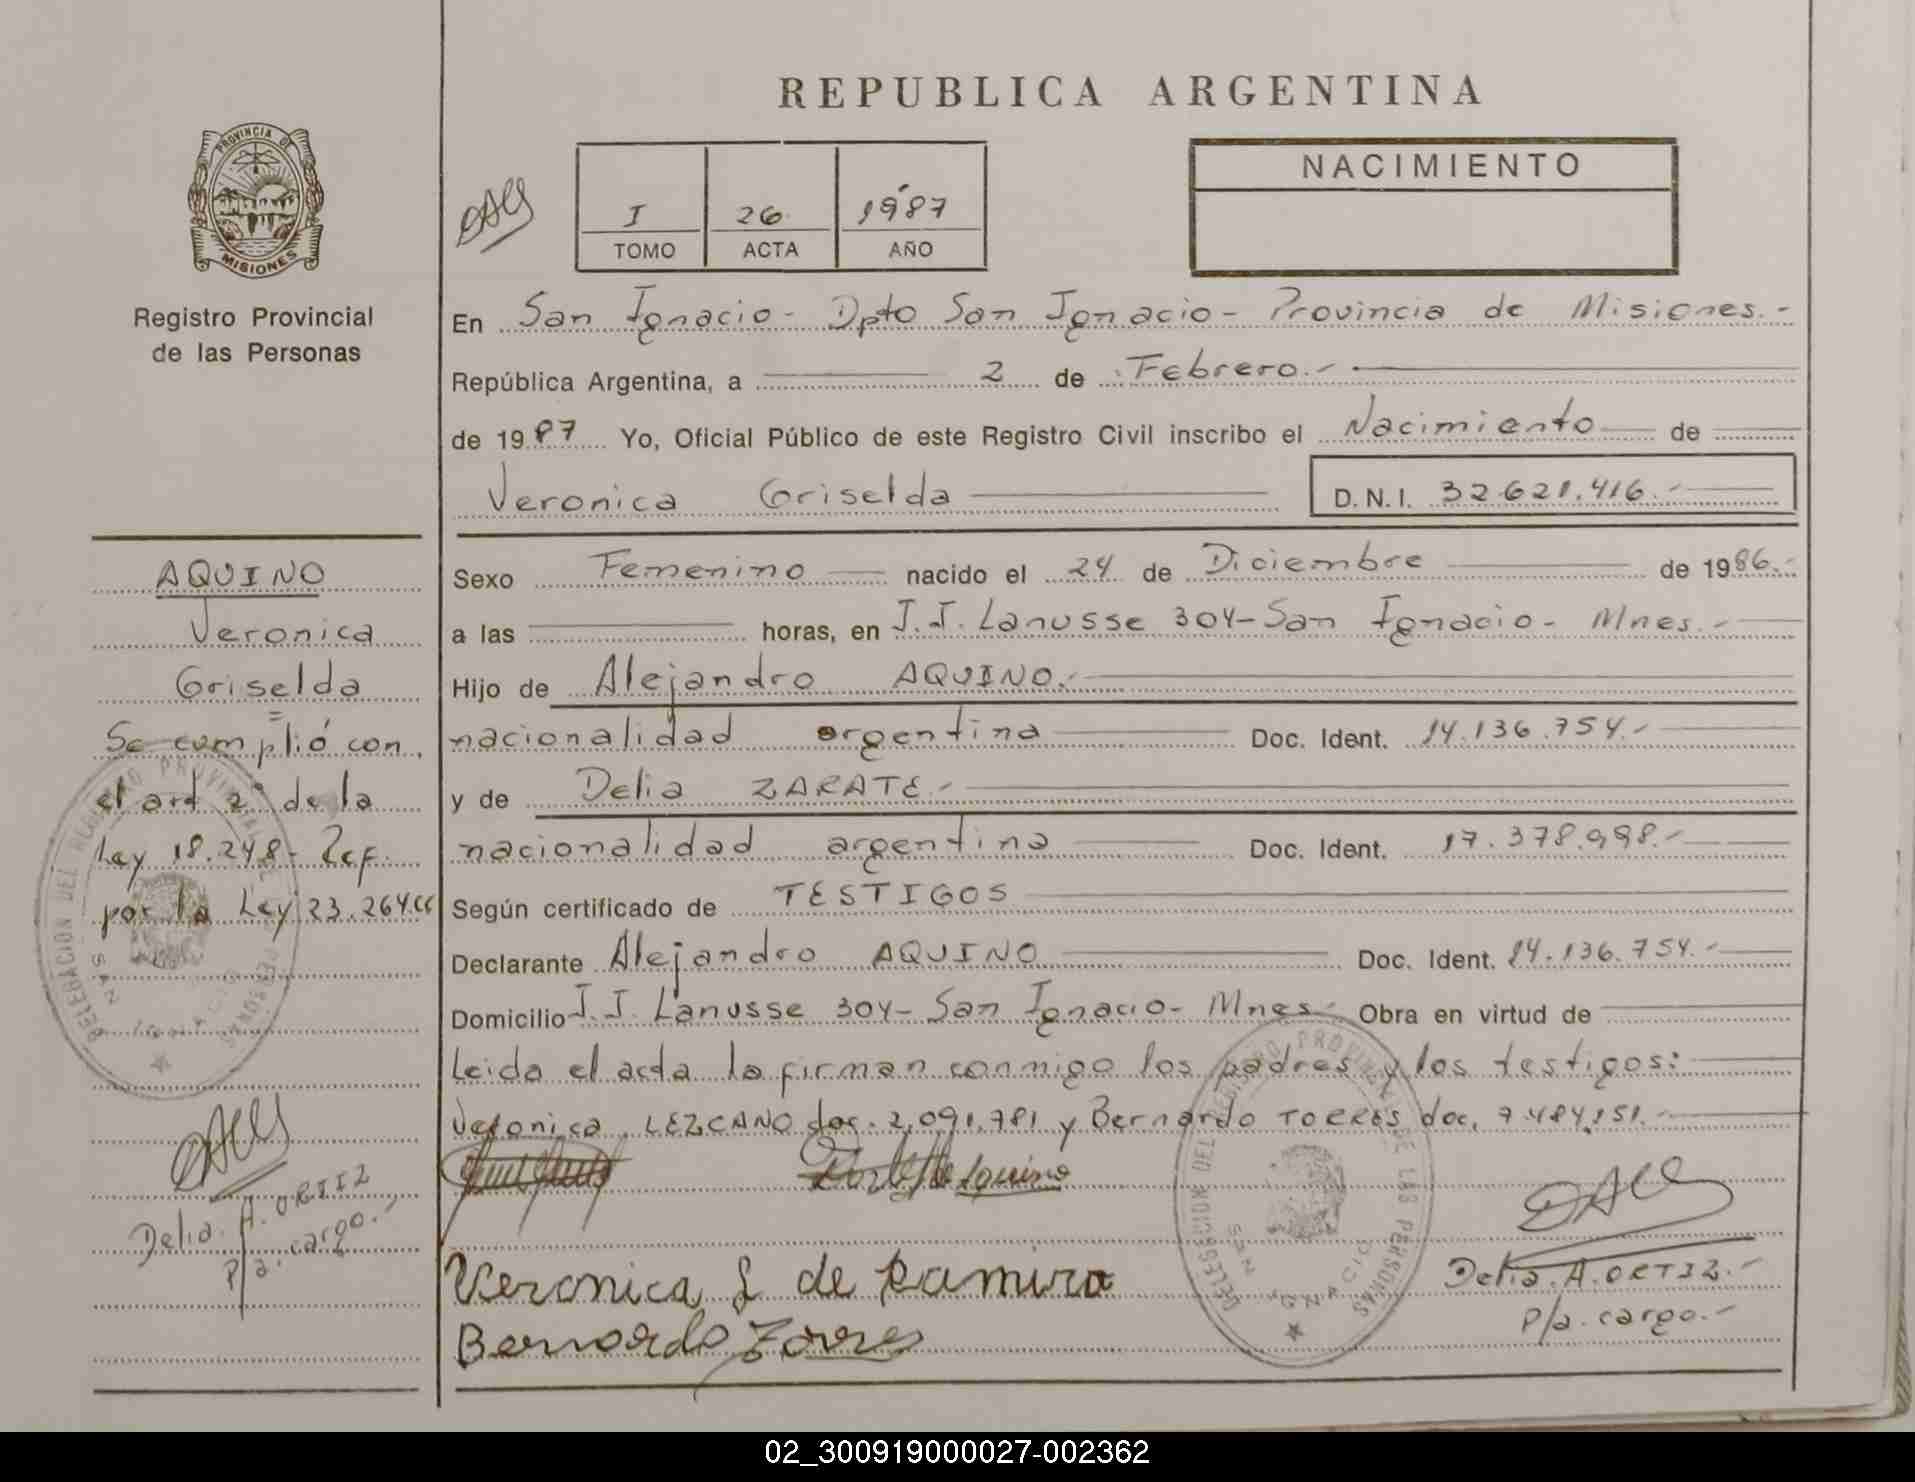 REPUBLICA ARGENTINA
PROVINCIA DE
MISIONES
Registro Provincial
de las Personas
I 26 1987
TOMO ACTA AÑO
NACIMIENTO
En San Ignacio - Dpto San Ignacio - Provincia de Misiones.-
República Argentina, a 2 de Febrero.-
de 1987 Yo, Oficial Público de este Registro Civil inscribo el Nacimiento de
Veronica Griselda D.N.I. 32.621.416.-
Sexo Femenino nacido el 24 de Diciembre de 1986.-
a las horas, en J.J. Lanusse 304-San Ignacio- Mnes.-
Hijo de Alejandro AQUINO.-
nacionalidad argentina Doc. Ident. 14.136.754.-
y de Delia ZARATE.-
nacionalidad argentina Doc. Ident. 17.378.998.-
Según certificado de TESTIGOS
Declarante Alejandro AQUINO Doc. Ident. 14.136.754.-
Domicilio J.J. Lanusse 304- San Ignacio- Mnes.- Obra en virtud de
Leida el acta la firman conmigo los padres y los testigos:
Veronica LEZCANO doc. 2,091,781 y Bernardo TORRES doc. 7.484.151.-
de Aquino
Veronica L de Ramirez
Bernardo Torres
Delia.A.ORTIZ.-
P/a.cargo.-
AQUINO
Veronica
Griselda
=
Se cumplió con
el art 2° de la
Ley 18.248- Ref.
por la Ley 23.264.
Delia. A. ORTIZ
P/a. cargo.-
DELEGACION DEL REGISTRO PROVINCIAL DE LAS PERSONAS
SAN IGNACIO
DELEGACION DEL REGISTRO PROVINCIAL DE LAS PERSONAS
SAN IGNACIO
02_300919000027-002362